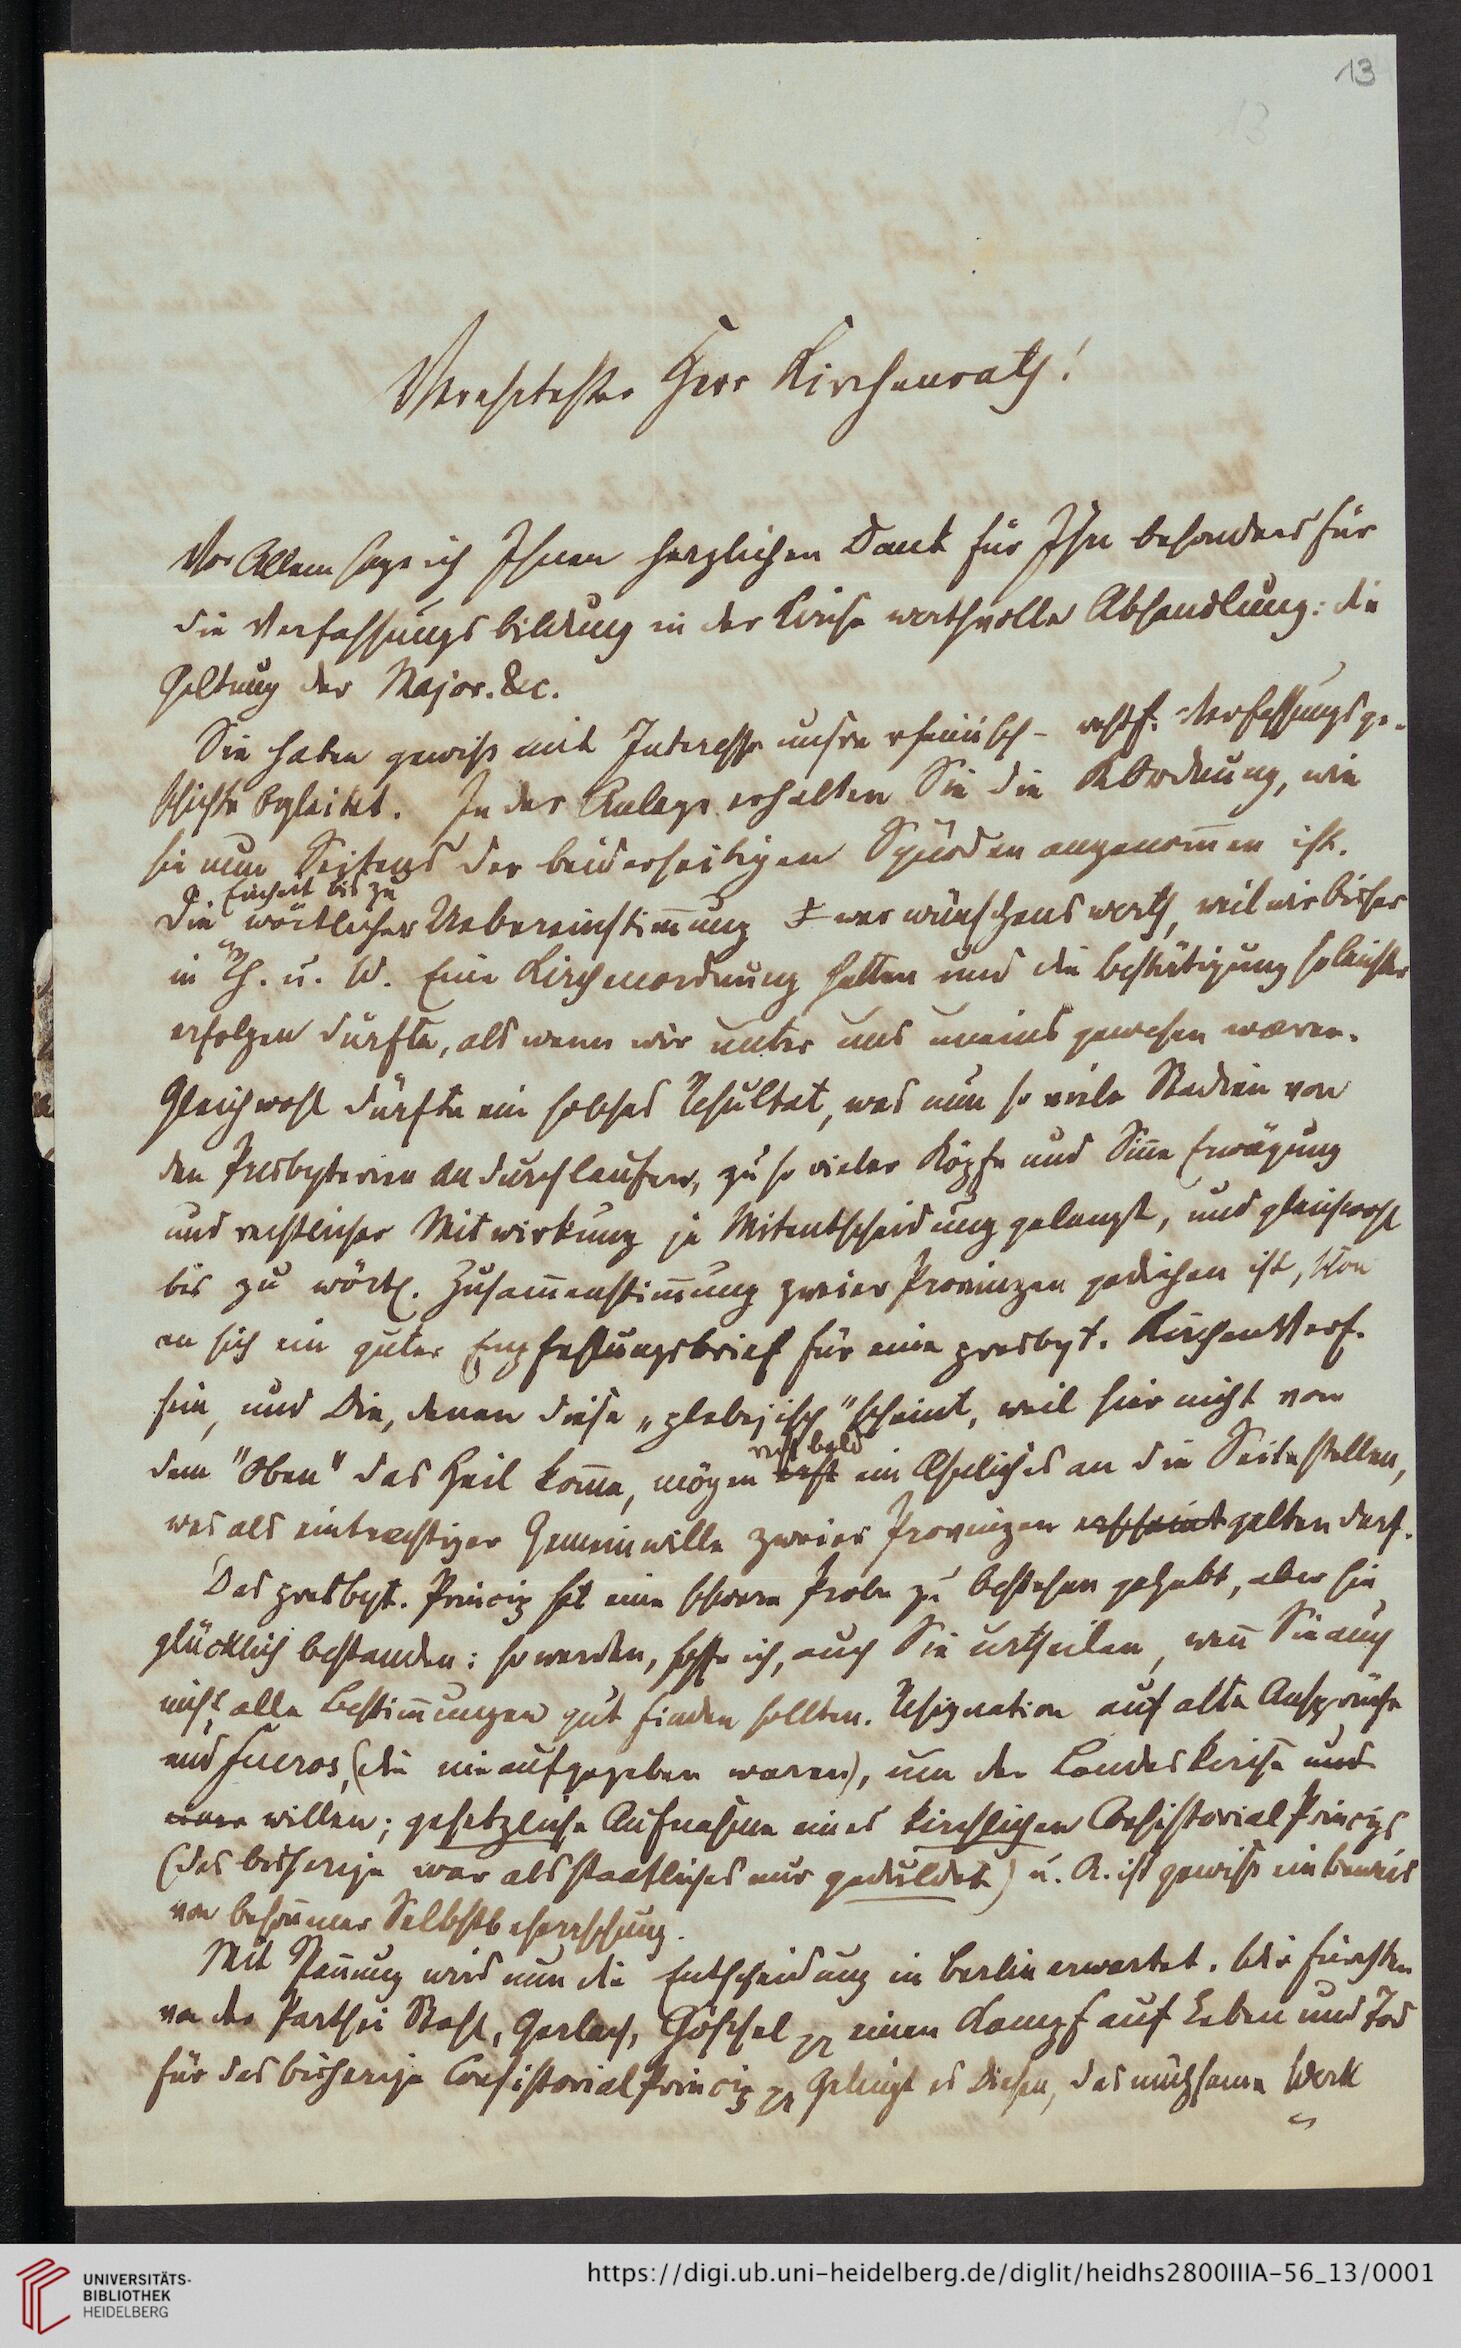 13
Verehrtester Herr Kirchenrath!
Vor Allem sage ich Ihnen herzlichen Dank für Ihre besonders für
die Verfassungsbildung in der Kirche werthvolle Abhandlung: die
Geltung der Major. &c.
Sie haben gewiß mit Interesse unsre rheinisch-westf. Verfassungsge-
schichte begleitet. In der Anlage erhalten Sie die KOrdnung, wie
sie nun Seitens der beiderseitigen Synoden angenom̄en ist.
Einheit bis zu
Die wörtlicher Uebereinstim̄ung war wünschenswerth, weil wir bisher
in Rh. u. W. Eine Kirchenordnung hatten und die Bestätigung so leichter
erfolgen dürfte, als wenn wir unter uns uneins gewesen wären.
Gleichwohl dürfte ein solches Resultat, was nun so viele Stadien von
den Presbyterien an durchlaufen, zu so vieler Köpfe und Sinne Erwägung
und rechtlicher Mitwirkung ja Mitentscheidung gelangt, und gleichwohl
bis zu wörtl. Zusam̄enstim̄ung zweier Provinzen gediehen ist, schon
an sich ein guter Empfehlungsbrief für eine presbyt. KirchenVerf.
sein, und Die, denen diese „plebejisch" scheint, weil hier nicht von
recht bald
dem "Oben" das Heil kom̄e, mögen erst ein Aehnliches an die Seite stellen,
was als einträchtiger Gemeinwille zweier Provinzen erscheint gelten darf.
Das presbyt. Princip hat eine schwere Probe zu bestehen gehabt, aber sie
glücklich bestanden: so werden, hoffe ich, auch Sie urtheilen, wen̄ Sie auch
nicht alle Bestim̄ungen gut finden sollten. Resignation auf alte Ansprüche
und Fueros, (die nie aufgegeben waren), um der Landeskirche und
willen; gesetzliche Aufnahme eines kirchlichen ConsistorialPrincips
(das bisherige war als staatliches nur geduldet) u. A. ist gewiß ein Beweis
von beson̄ener Selbstbeherrschung.
Mit Span̄ung wird nun die Entscheidung in Berlin erwartet. Wir fürchten
von der Parthei Stahl, Gerlach, Göschel pp einen Kampf auf Leben und Tod
für das bisherige ConsistorialPrincip pp Gelingt es Diesen, das mühsame Werk
UNIVERSITÄTS-
BIBLIOTHEK
HEIDELBERG
https://digi.ub.uni-heidelberg.de/diglit/heidhs2800IIIA-56_13/0001